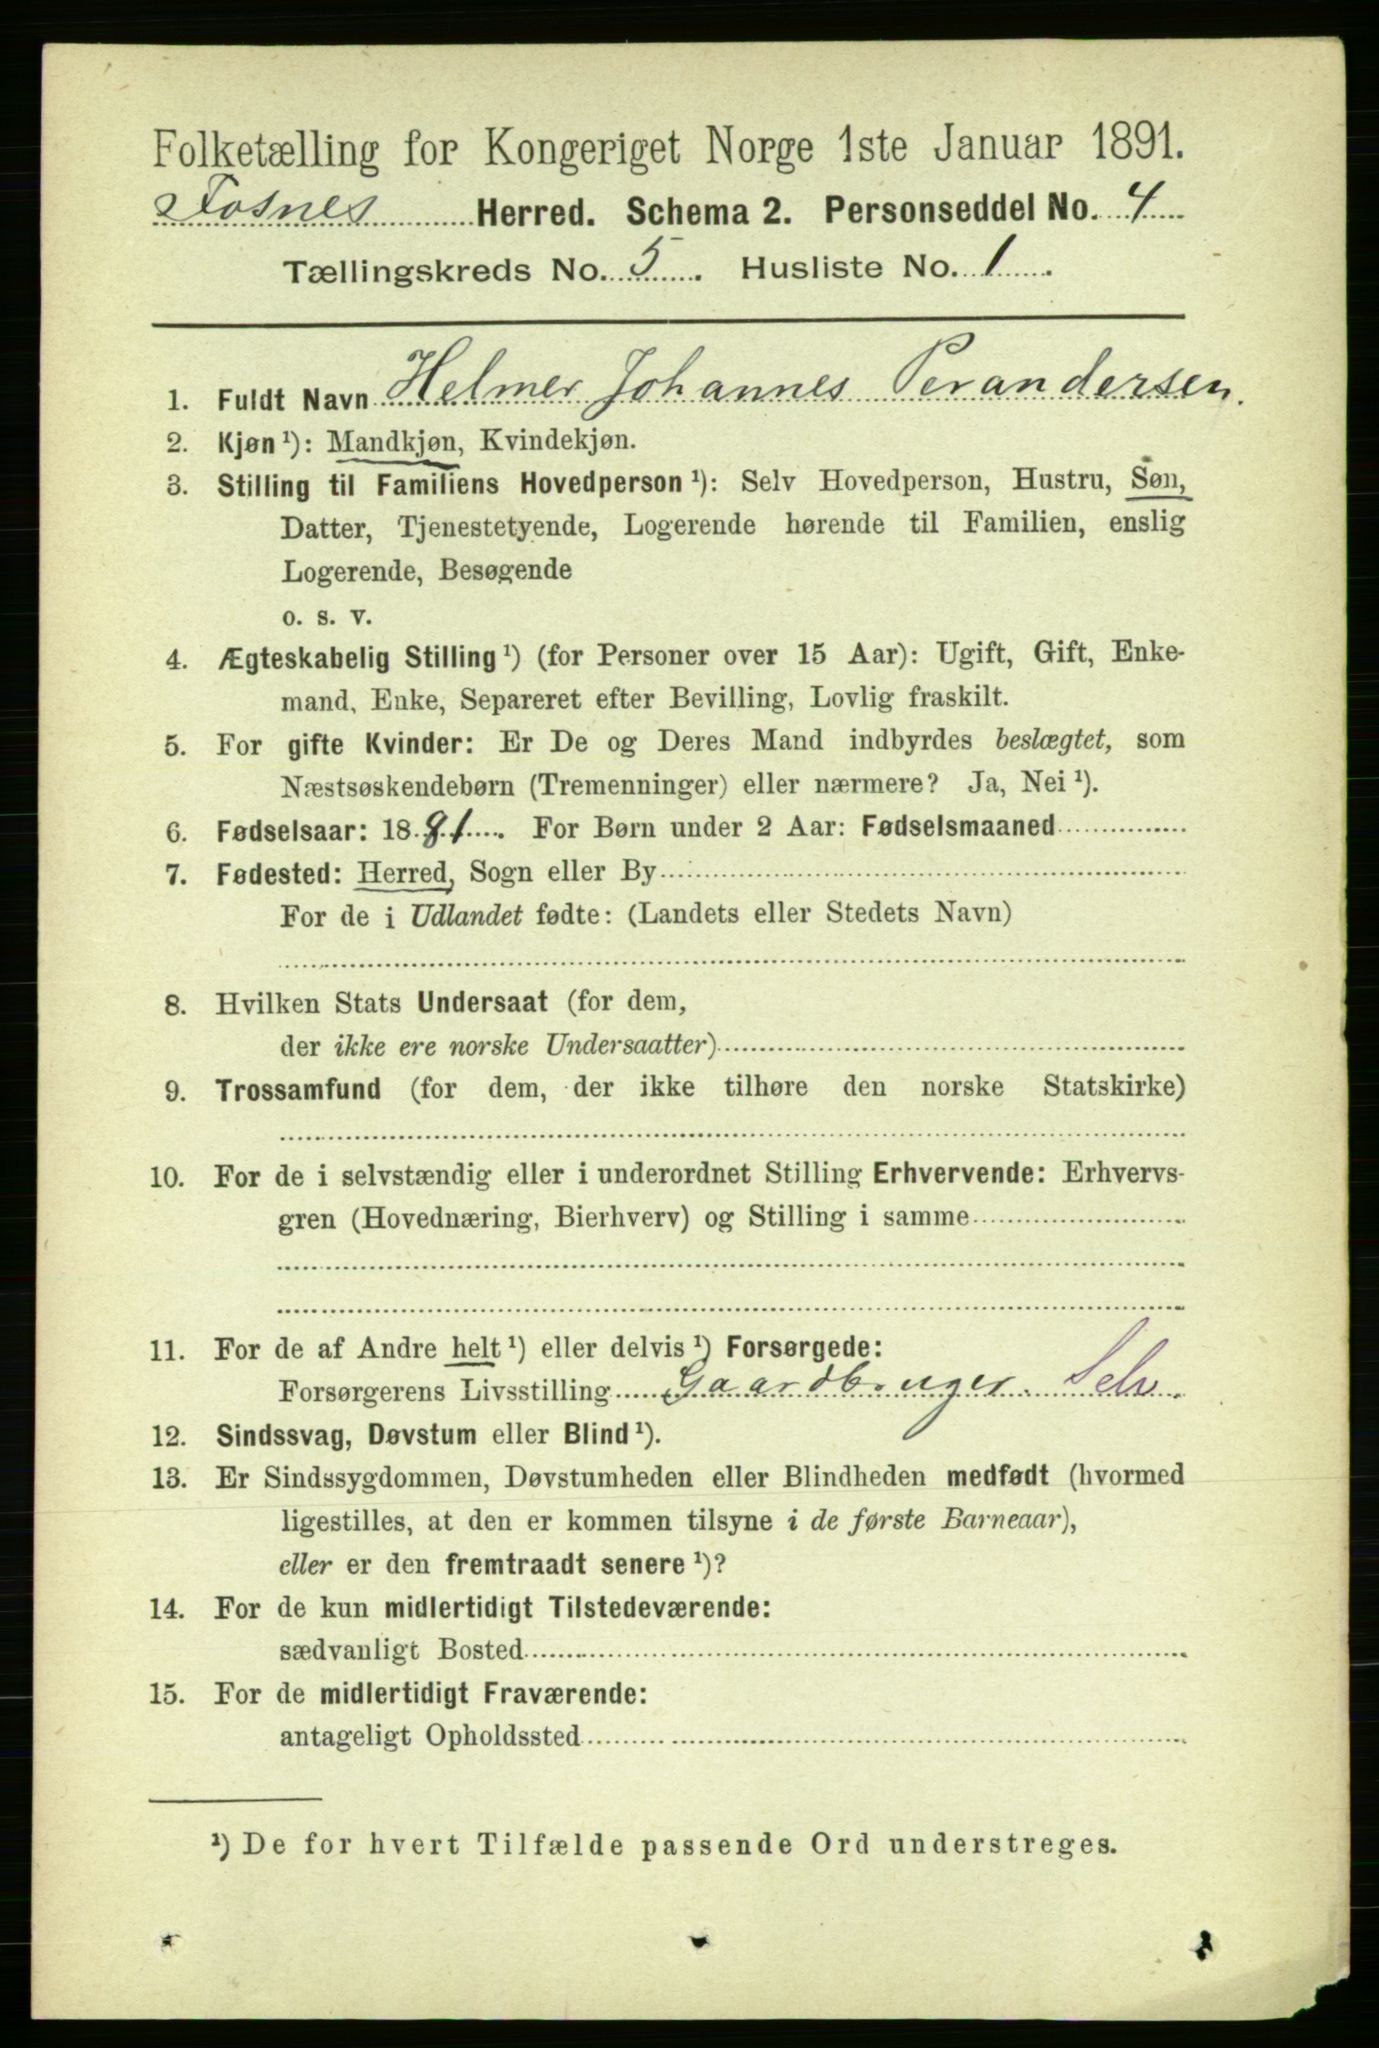 Folketælling for Kongeriget Norge 1ste Januar 1891.
Fosnes Herred. Schema 2. Personseddel No. 4
Tællingskreds No. 5. Husliste No. 1.
1. Fuldt Navn Helmer Johannes Perandersen.
2. Kjøn ¹): Mandkjøn, Kvindekjøn.
3. Stilling til Familiens Hovedperson ¹): Selv Hovedperson, Hustru, Søn,
Datter, Tjenestetyende, Logerende hørende til Familien, enslig
Logerende, Besøgende
o. s. v.
4. Ægteskabelig Stilling ¹) (for Personer over 15 Aar): Ugift, Gift, Enke-
mand, Enke, Separeret efter Bevilling, Lovlig fraskilt.
5. For gifte Kvinder: Er De og Deres Mand indbyrdes beslægtet, som
Næstsøskendebørn (Tremenninger) eller nærmere? Ja, Nei ¹).
6. Fødselsaar: 1891. For Børn under 2 Aar: Fødselsmaaned
7. Fødested: Herred, Sogn eller By
For de i Udlandet fødte: (Landets eller Stedets Navn)
8. Hvilken Stats Undersaat (for dem,
der ikke ere norske Undersaatter)
9. Trossamfund (for dem, der ikke tilhøre den norske Statskirke)
10. For de i selvstændig eller i underordnet Stilling Erhvervende: Erhvervs-
gren (Hovednæring, Bierhverv) og Stilling i samme
11. For de af Andre helt ¹) eller delvis ¹) Forsørgede:
Forsørgerens Livsstilling Gaardbruger. Selv.
12. Sindssvag, Døvstum eller Blind ¹).
13. Er Sindssygdommen, Døvstumheden eller Blindheden medfødt (hvormed
ligestilles, at den er kommen tilsyne i de første Barneaar),
eller er den fremtraadt senere ¹)?
14. For de kun midlertidigt Tilstedeværende:
sædvanligt Bosted
15. For de midlertidigt Fraværende:
antageligt Opholdssted
¹) De for hvert Tilfælde passende Ord understreges.